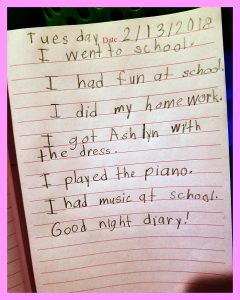 Tuesday Date 2/13/2018
I went to school.
I had fun at school.
I did my homework.
I got Ashlyn with
the dress.
I played the piano.
I had music at school.
Good night diary!